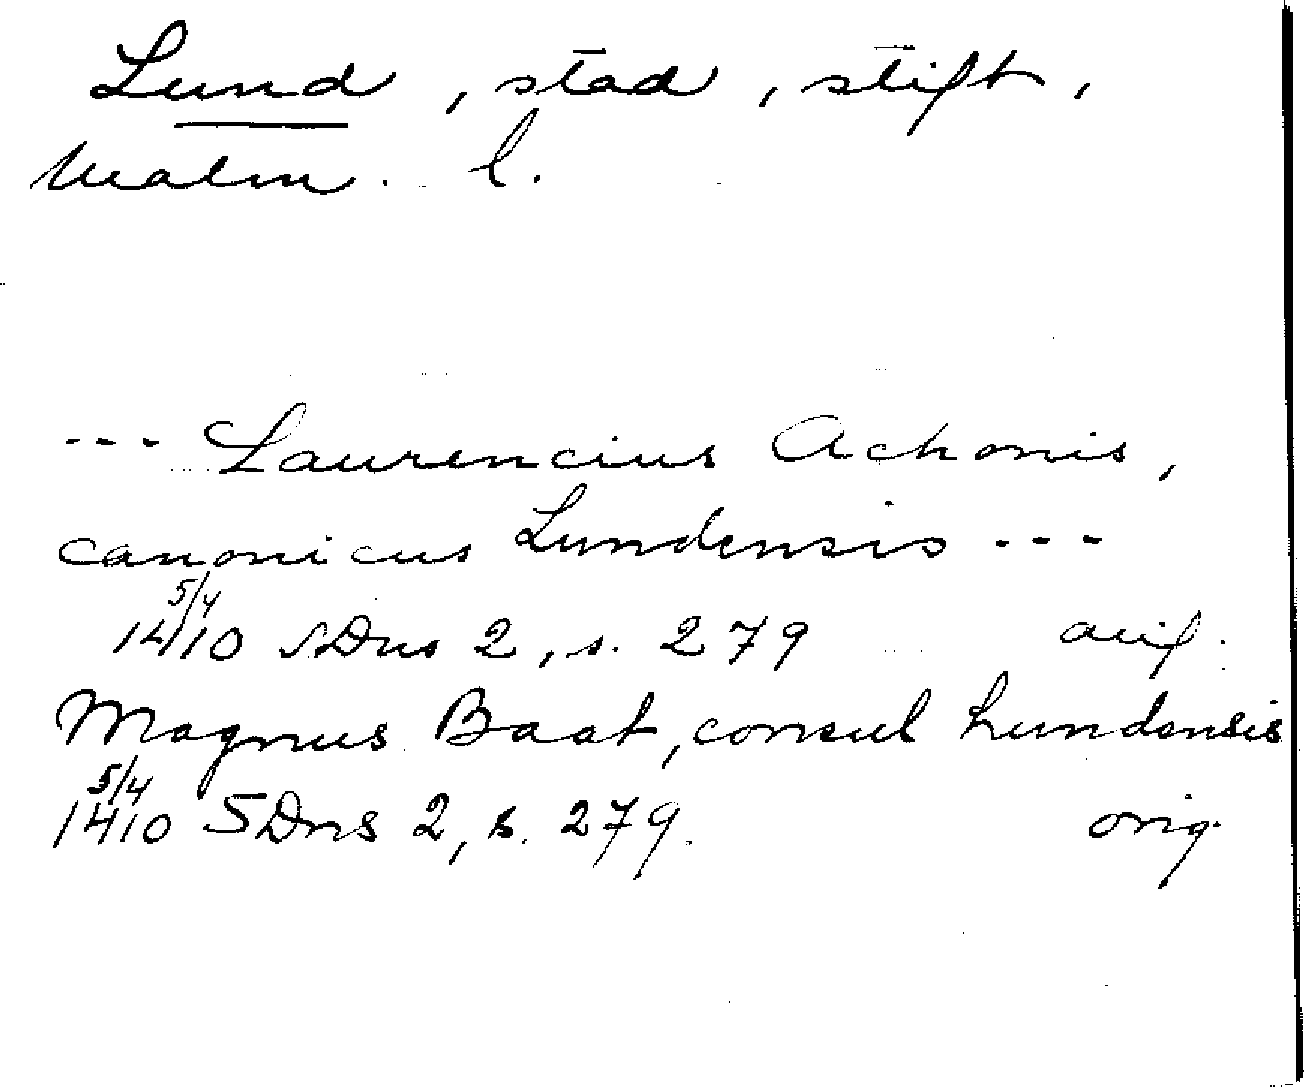 Lund, stad, stift,
Malm. l.
--- Laurencius Achonis,
canonicus Lundensis ---
5/4
1410 SDns 2, s. 279
Magnus Baat, consul Lundensis
5/4
1410 SDns 2, s. 279. orig.